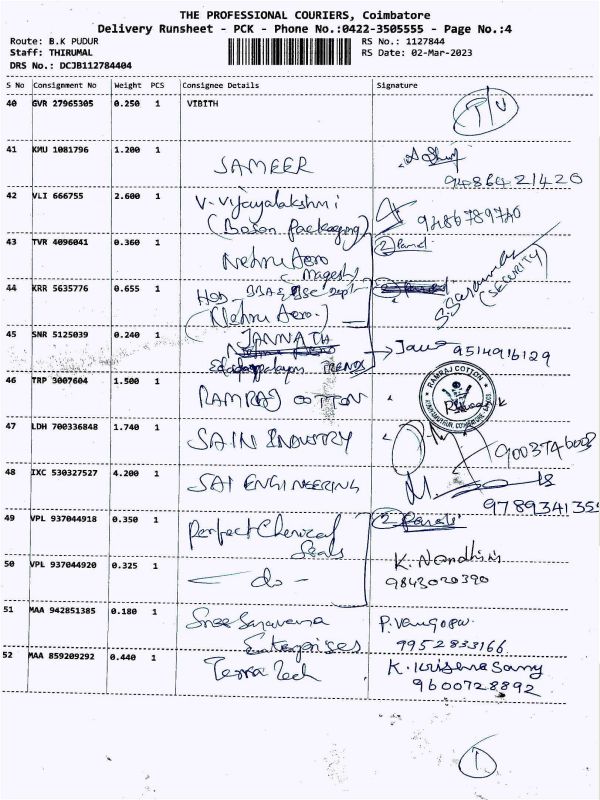 THE PROFESSIONAL COURIERS, Coimbatore
Delivery Runsheet - PCK - Phone No.:0422-3505555 - Page No.:4
Route: B.K PUDUR
RS No.: 1127844
Staff: THIRUMAL
RS Date: 02-Mar-2023
DRS No.: DCJB112784404
S No Consignment No Weight PCS Consignee Details Signature
40 GVR 27965305 0.250 1 VIBITH
41 KMU 1081796 1.200 1
SAMEER
9486421420
42 VLI 666755 2.600 1 V. Vijayalakshmi
9486789740
43 TVR 4096041 0.360 1
Nehru Aero
(Magesh)
44 KRR 5635776 0.655 1
(SECURITY)
(Nehru Aero.)
45 SNR 5125039 0.240 1 JANNATH
9514916129
TRENDS
46 TRP 3007604 1.500 1
RAMRAJ COTTON
RAMRAJ COTTON
47 LDH 700336848 1.740 1
SAIN INDUSTRY
48 IXC 530327527 4.200 1
SAI ENGINEERING
49 VPL 937044918 0.350 1 Perfect Chemical
Seals
50 VPL 937044920 0.325 1 — do —
K. Nandhini
9843020390
51 MAA 942851385 0.180 1 Sree Saravana
Enterprises
9952833166
52 MAA 859209292 0.440 1 Terra Tech
K. Krishna Samy
9600728892
1